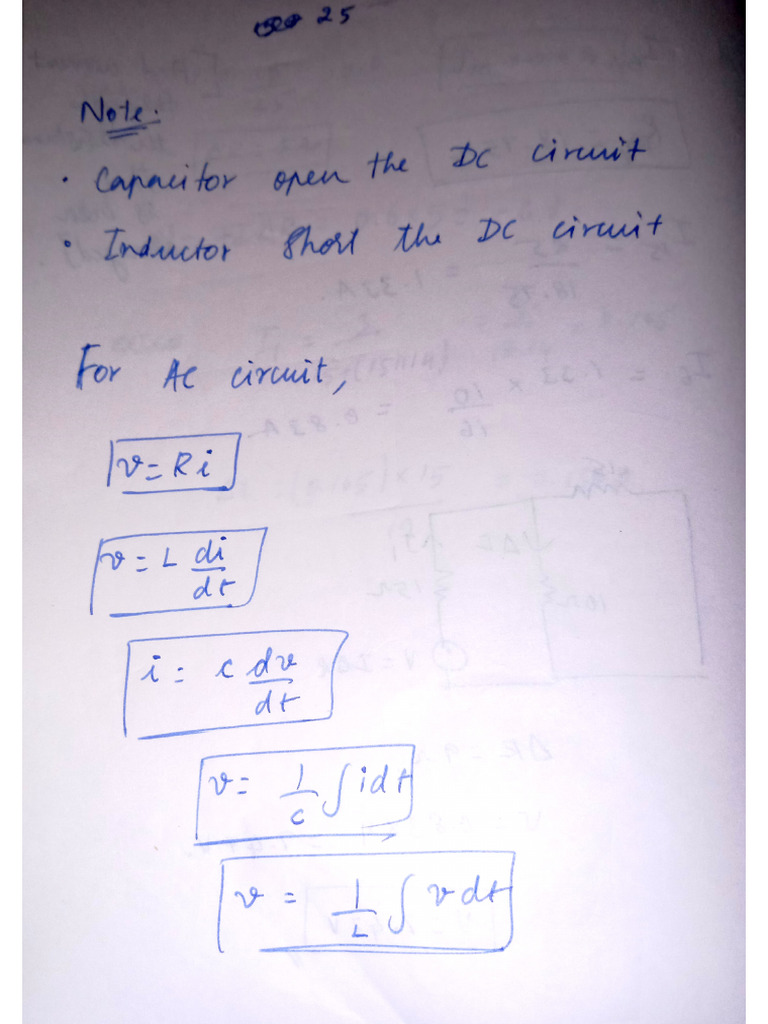 25
Note:
• Capacitor open the DC circuit
• Inductor short the DC circuit
For AC circuit,
v = Ri
v = L di/dt
i = c dv/dt
v = 1/c ∫ idt
v = 1/L ∫ v dt